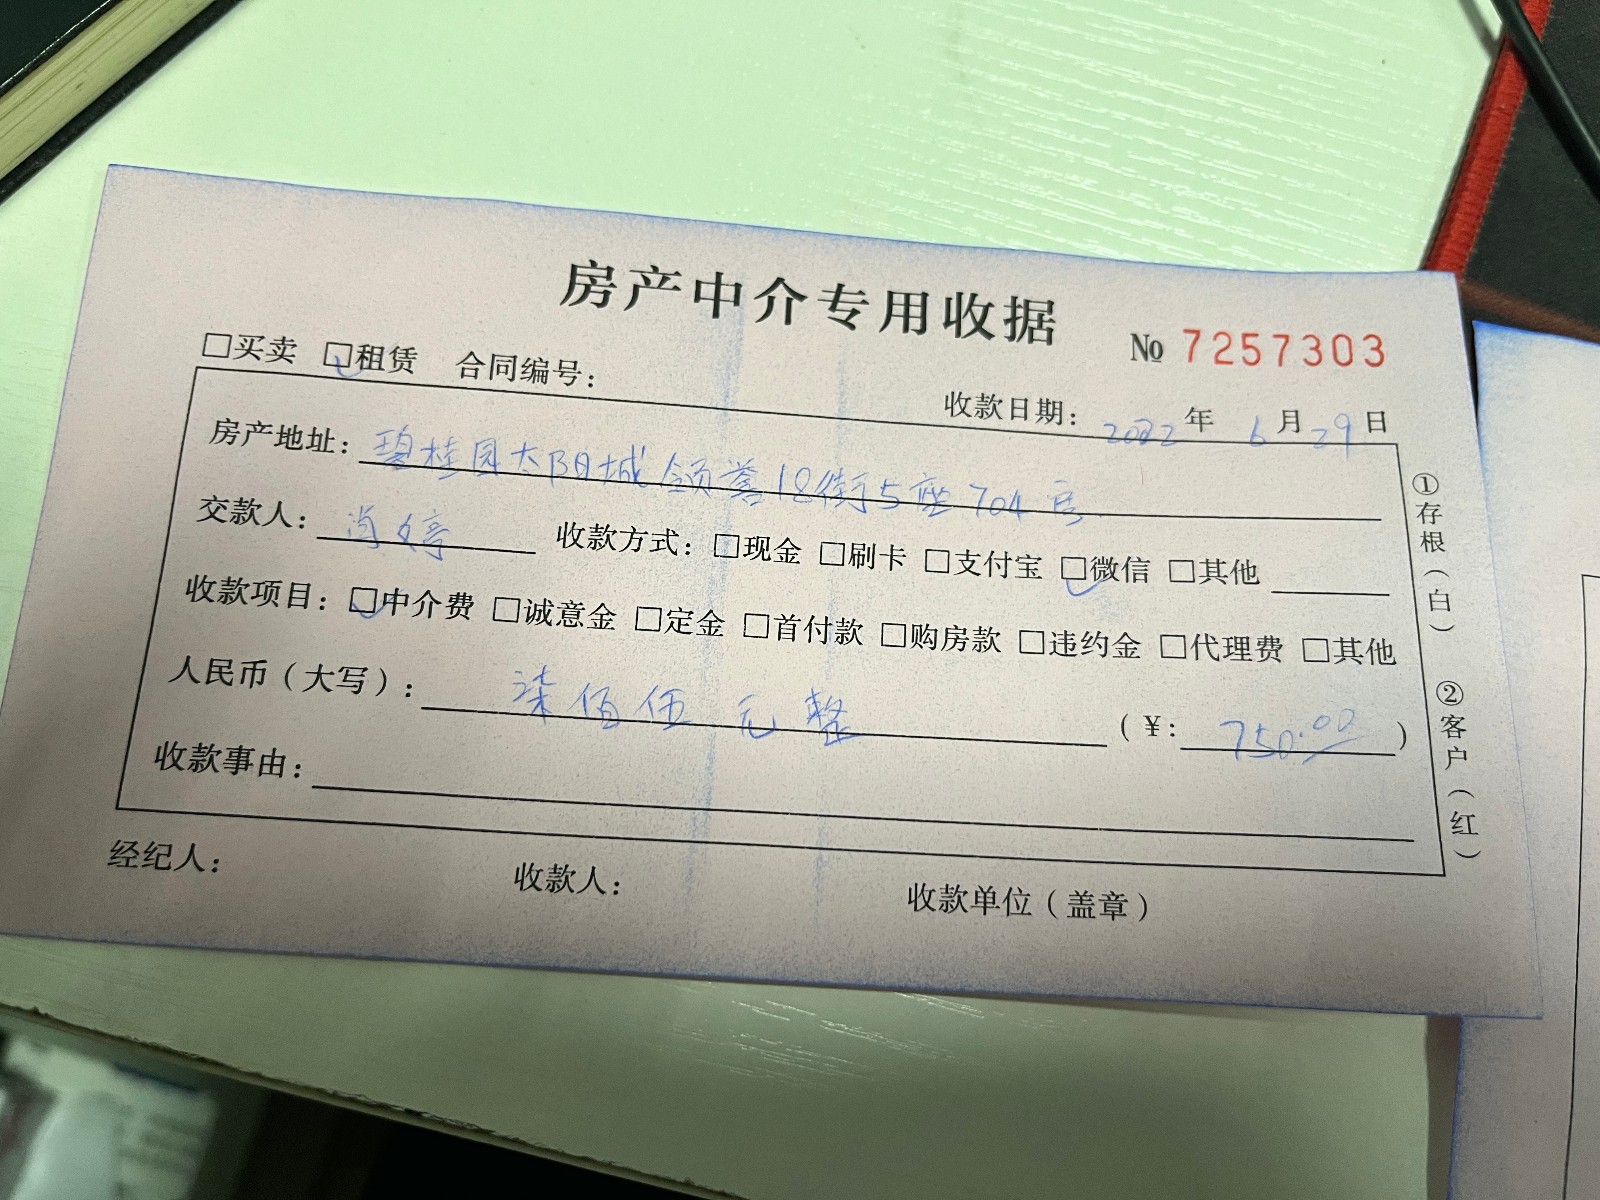 房产中介专用收据
№ 7257303
□买卖 □租赁 合同编号：
收款日期：2022年6月29日
房产地址：碧桂园太阳城领誉18街5座704房
交款人：肖婷 收款方式：□现金 □刷卡 □支付宝 □微信 □其他
收款项目：□中介费 □诚意金 □定金 □首付款 □购房款 □违约金 □代理费 □其他
人民币（大写）：柒佰伍元整 （¥：750.00）
收款事由：
经纪人： 收款人： 收款单位（盖章）
①存根（白） ②客户（红）